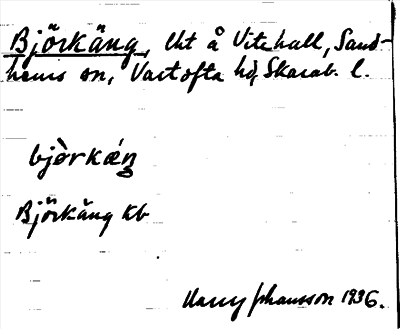 Björkäng, Uht å Vitehall, Sand-
hems sn, Vartofta hd, Skarab. l.
bjørkæŋ
Björkäng kb
Harry Johansson 1936.